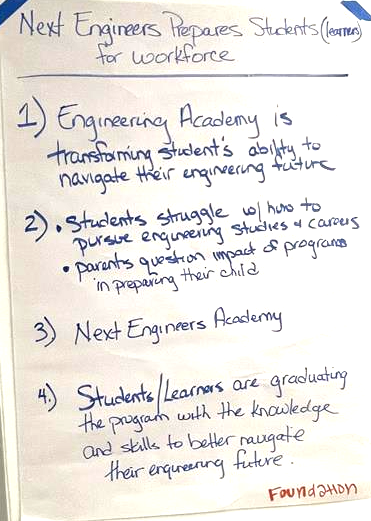 Next Engineers Prepares Students (learners)
for workforce
1) Engineering Academy is
transforming student's ability to
navigate their engineering future
2) • Students struggle w/ how to
pursue engineering studies & careers
• parents question impact of programs
in preparing their child
3) Next Engineers Academy
4.) Students/Learners are graduating
the program with the knowledge
and skills to better navigate
their engineering future.
Foundation